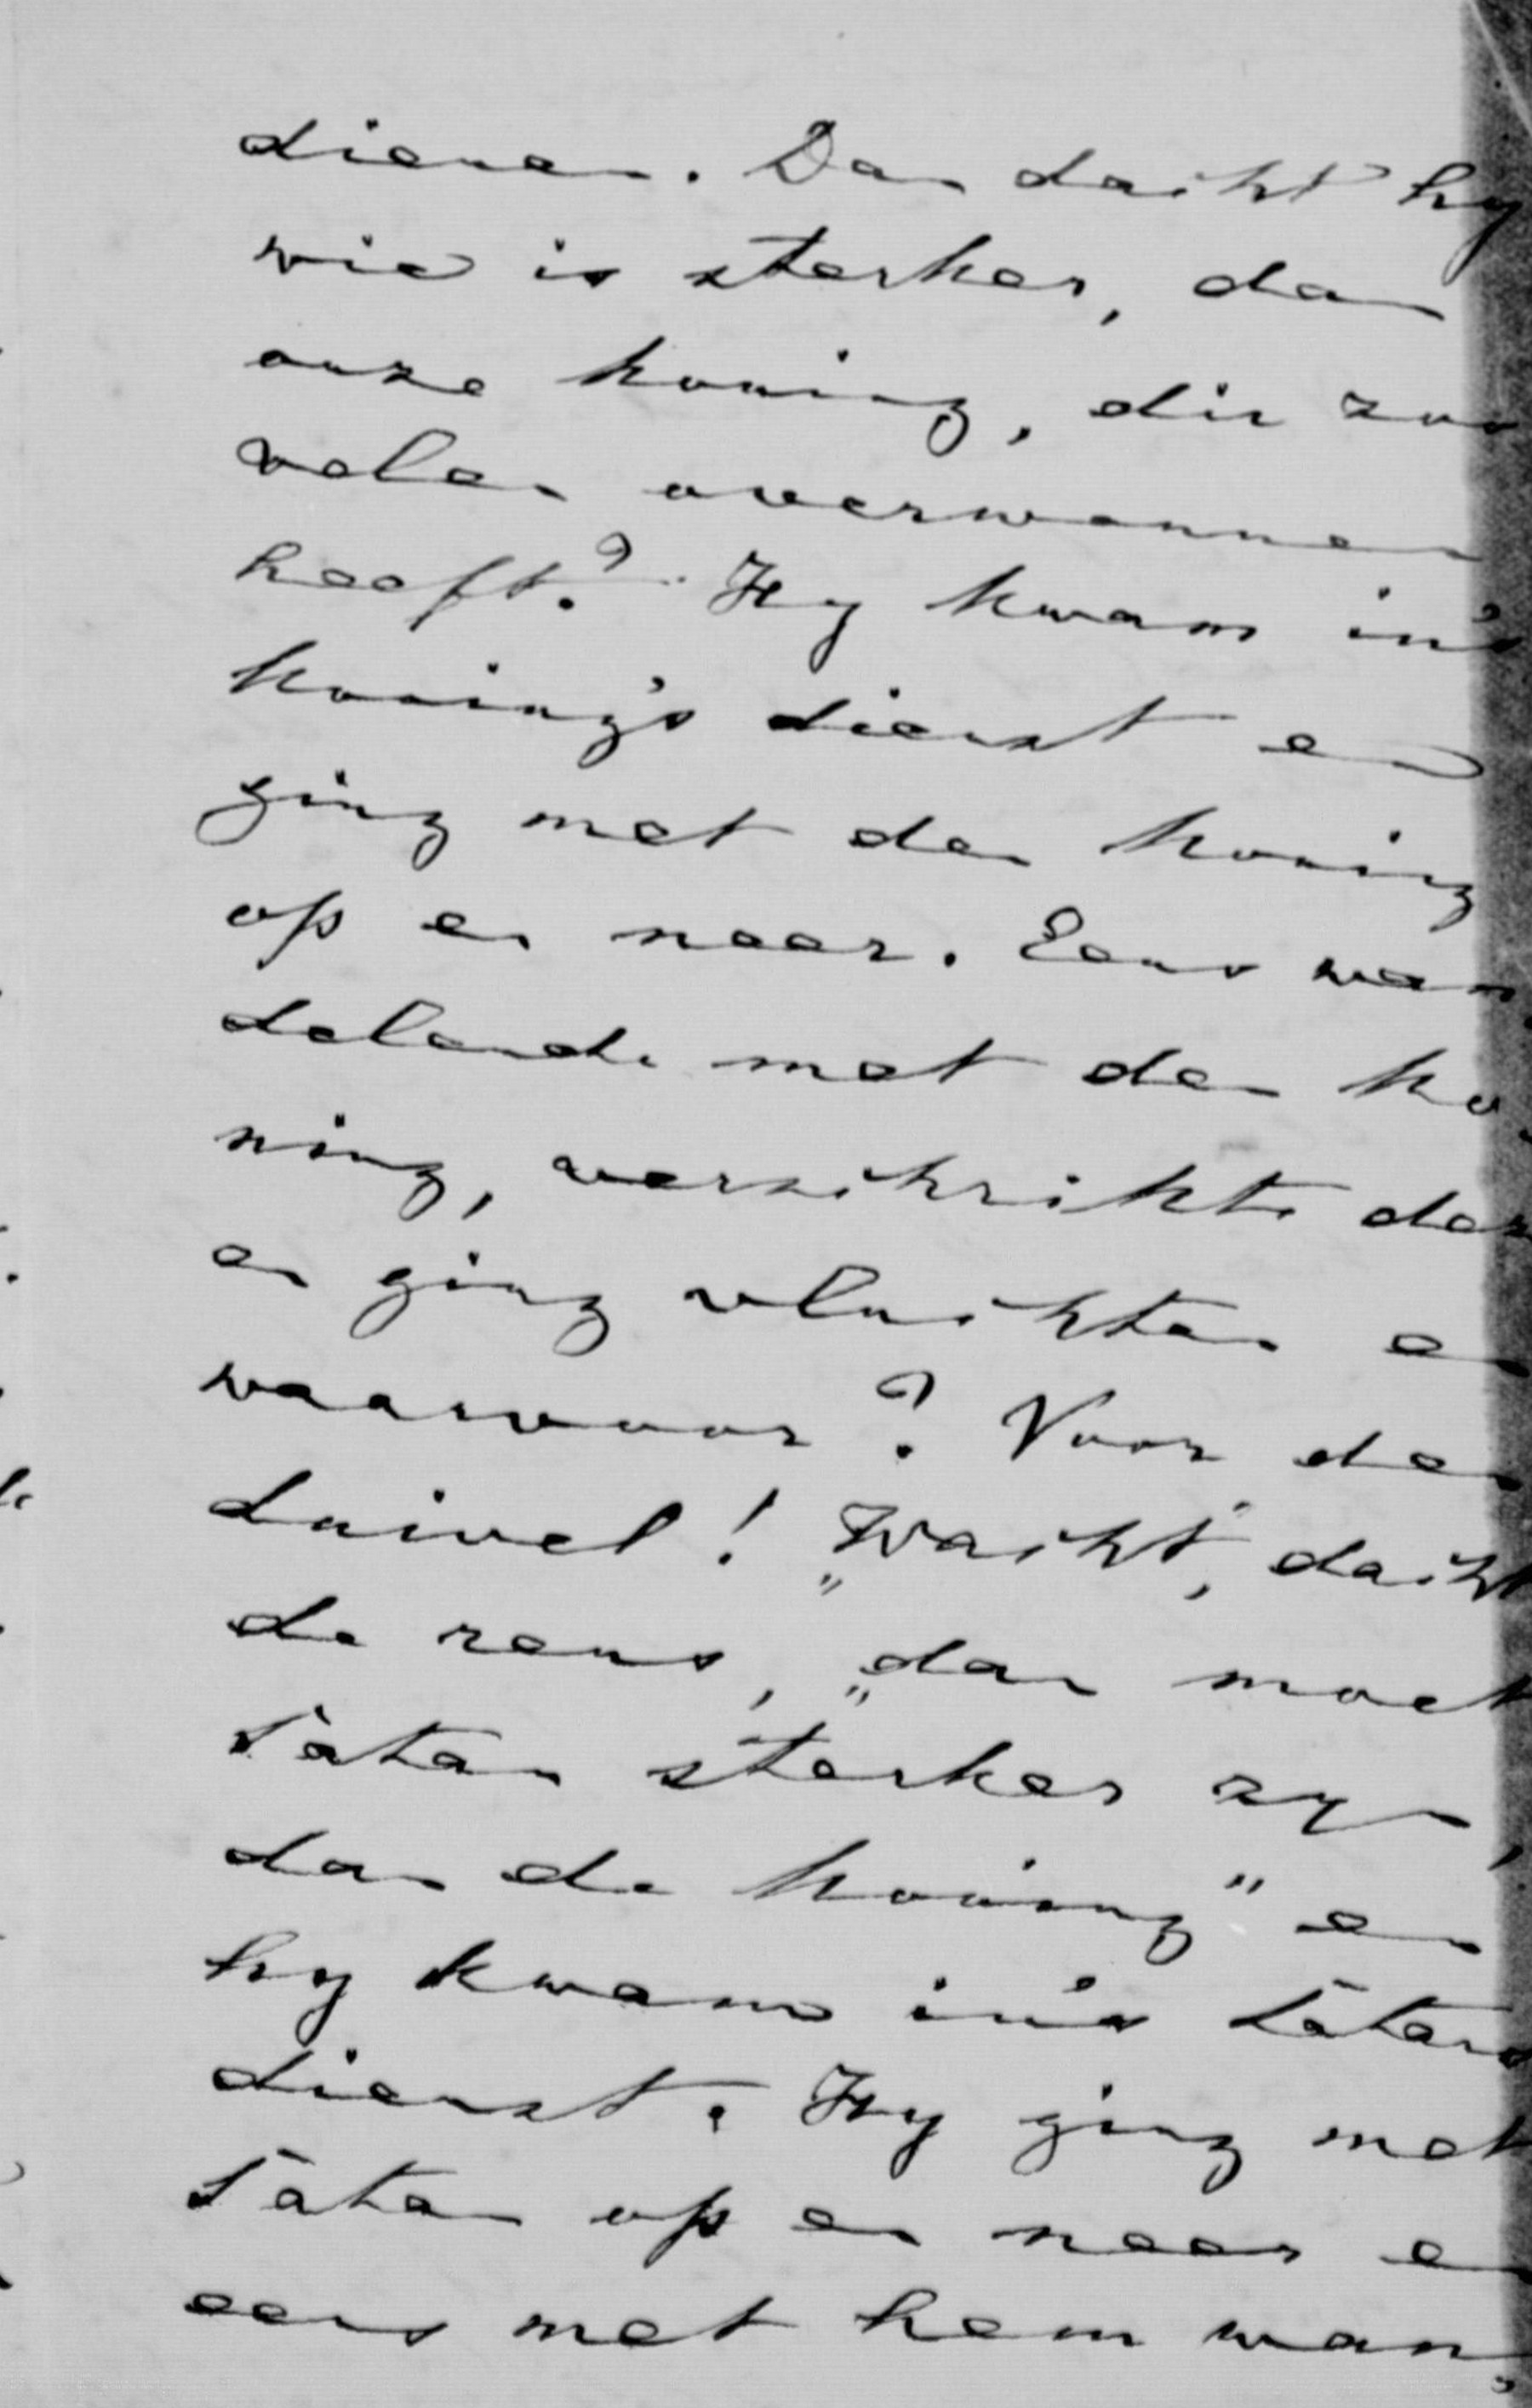 dienen. Dan dacht hy
wie is sterker, dan
onze koning, die zoo
velen overwonnen
heeft? Hy kwam in's
koning's dienst en
ging met den koning
op en neer. Eens wan
delende met den ko
ning, verschrikte der
en ging vluchten en
waarvoor? Voor den
duivel! „Wacht", dacht
de reus, „dan moet
Satan sterker zyn,
dan de koning" en
hy kwam in's Satans
dienst. Hy ging met
Satan op en neer en
eens met hem wan